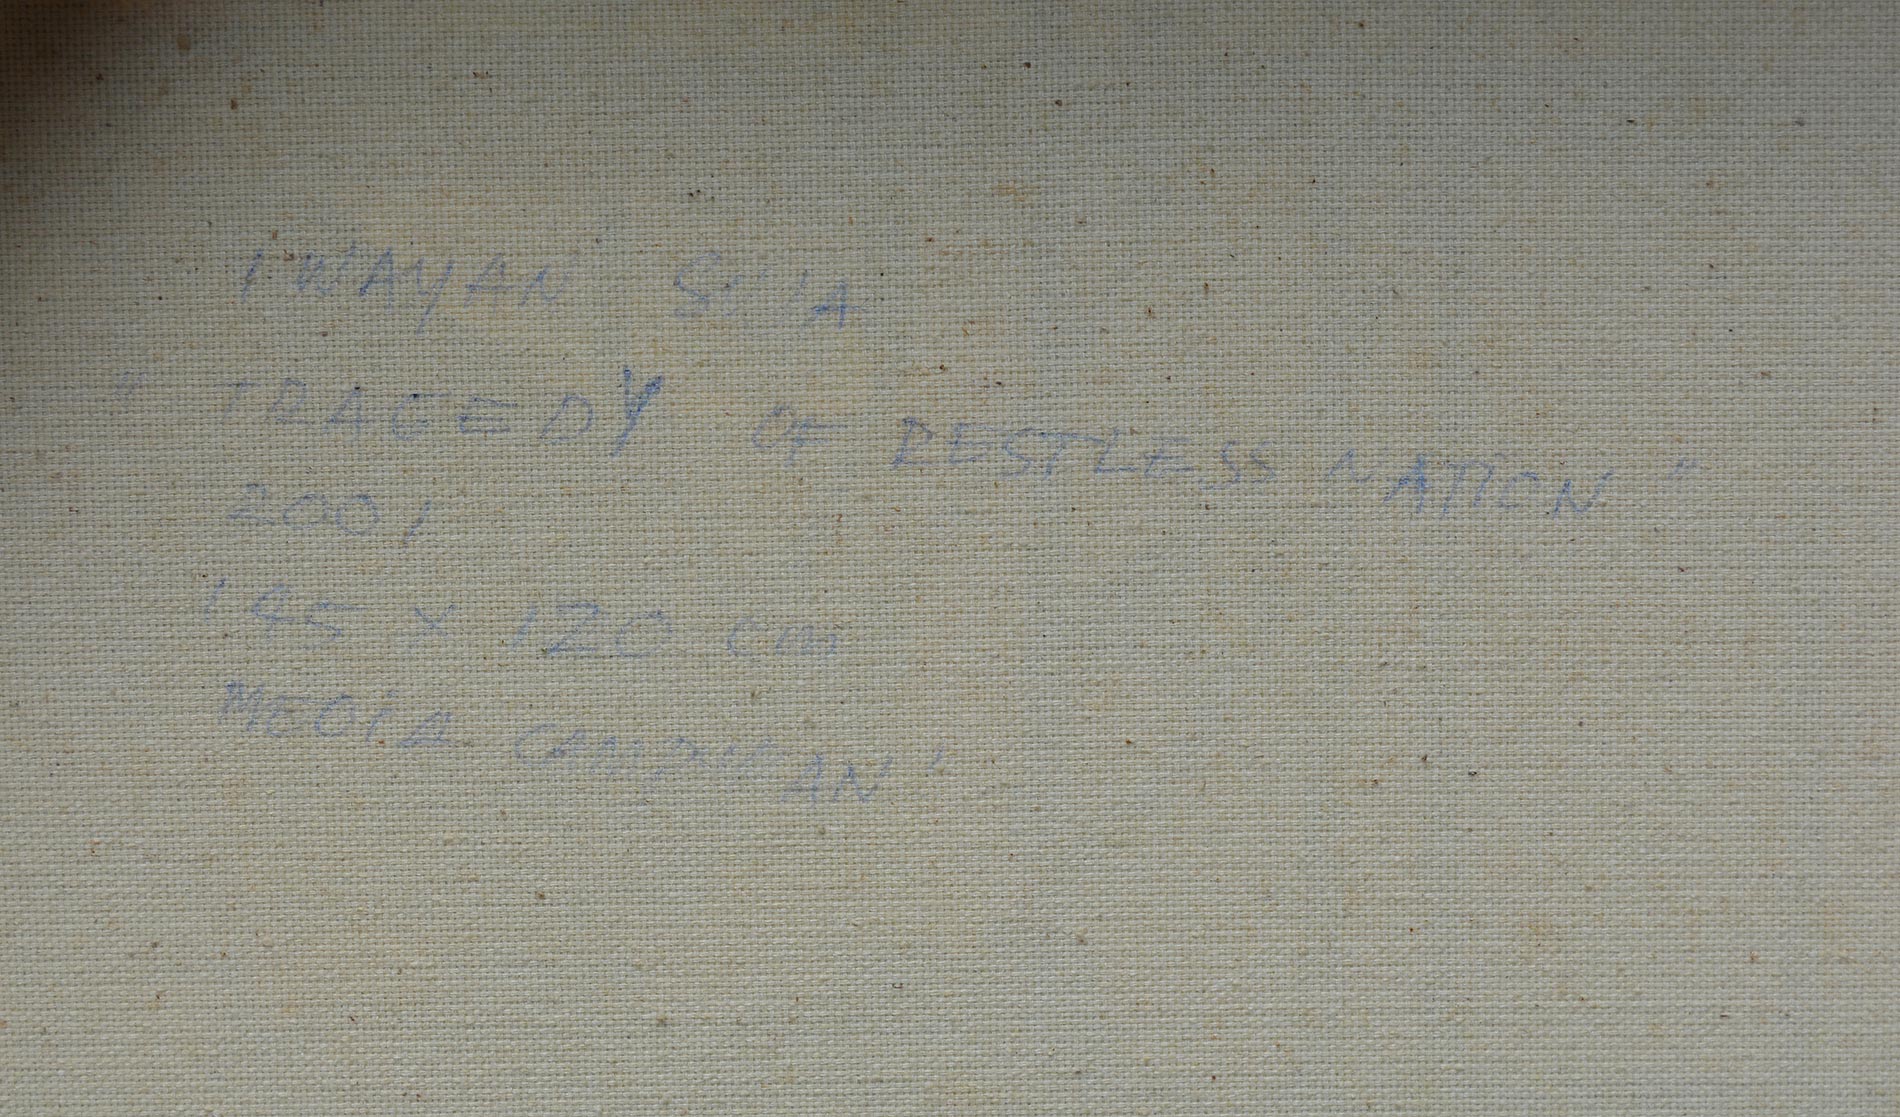 I WAYAN
" TRAGEDY OF RESTLESS NATION "
2001
145 X 120 cm
MEDIA CAMPURAN '